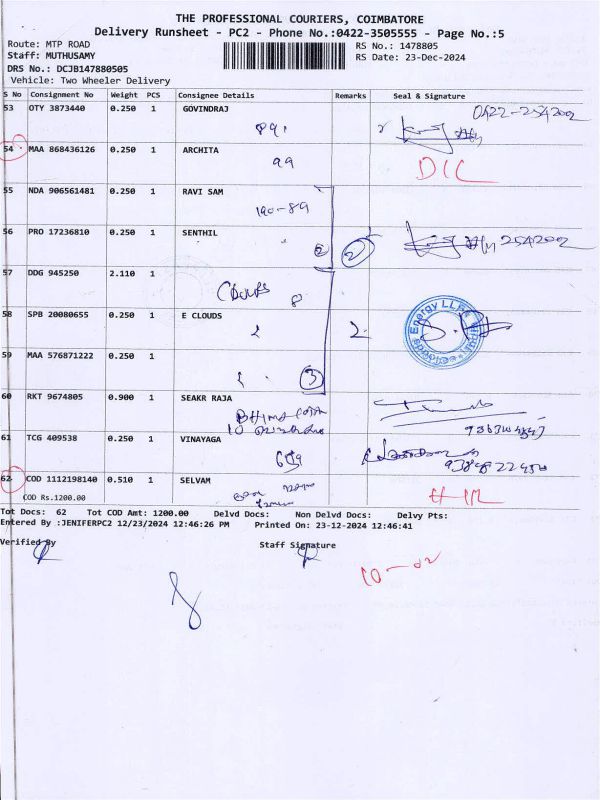 THE PROFESSIONAL COURIERS, COIMBATORE
Delivery Runsheet - PC2 - Phone No.:0422-3505555 - Page No.:5
Route: MTP ROAD
RS No.: 1478805
Staff: MUTHUSAMY
RS Date: 23-Dec-2024
DRS No.: DCJB147880505
Vehicle: Two Wheeler Delivery
S No Consignment No Weight PCS Consignee Details Remarks Seal & Signature
53 OTY 3873440 0.250 1 GOVINDRAJ
0422-2542002
89,
54 MAA 868436126 0.250 1 ARCHITA
99
DLC
55 NDA 906561481 0.250 1 RAVI SAM
190-89
56 PRO 17236810 0.250 1 SENTHIL
2 2 2542002
57 DDG 945250 2.110 1
Clouds 8
58 SPB 20080655 0.250 1 E CLOUDS
2 2.
Energy LLP
59 MAA 576871222 0.250 1
3
60 RKT 9674805 0.900 1 SEAKR RAJA
61 TCG 409538 0.250 1 VINAYAGA
62 COD 1112198140 0.510 1 SELVAM
COD Rs.1200.00
Tot Docs: 62 Tot COD Amt: 1200.00 Delvd Docs: Non Delvd Docs: Delvy Pts:
Entered By :JENIFERPC2 12/23/2024 12:46:26 PM Printed On: 23-12-2024 12:46:41
Verified By Staff Signature
10-02